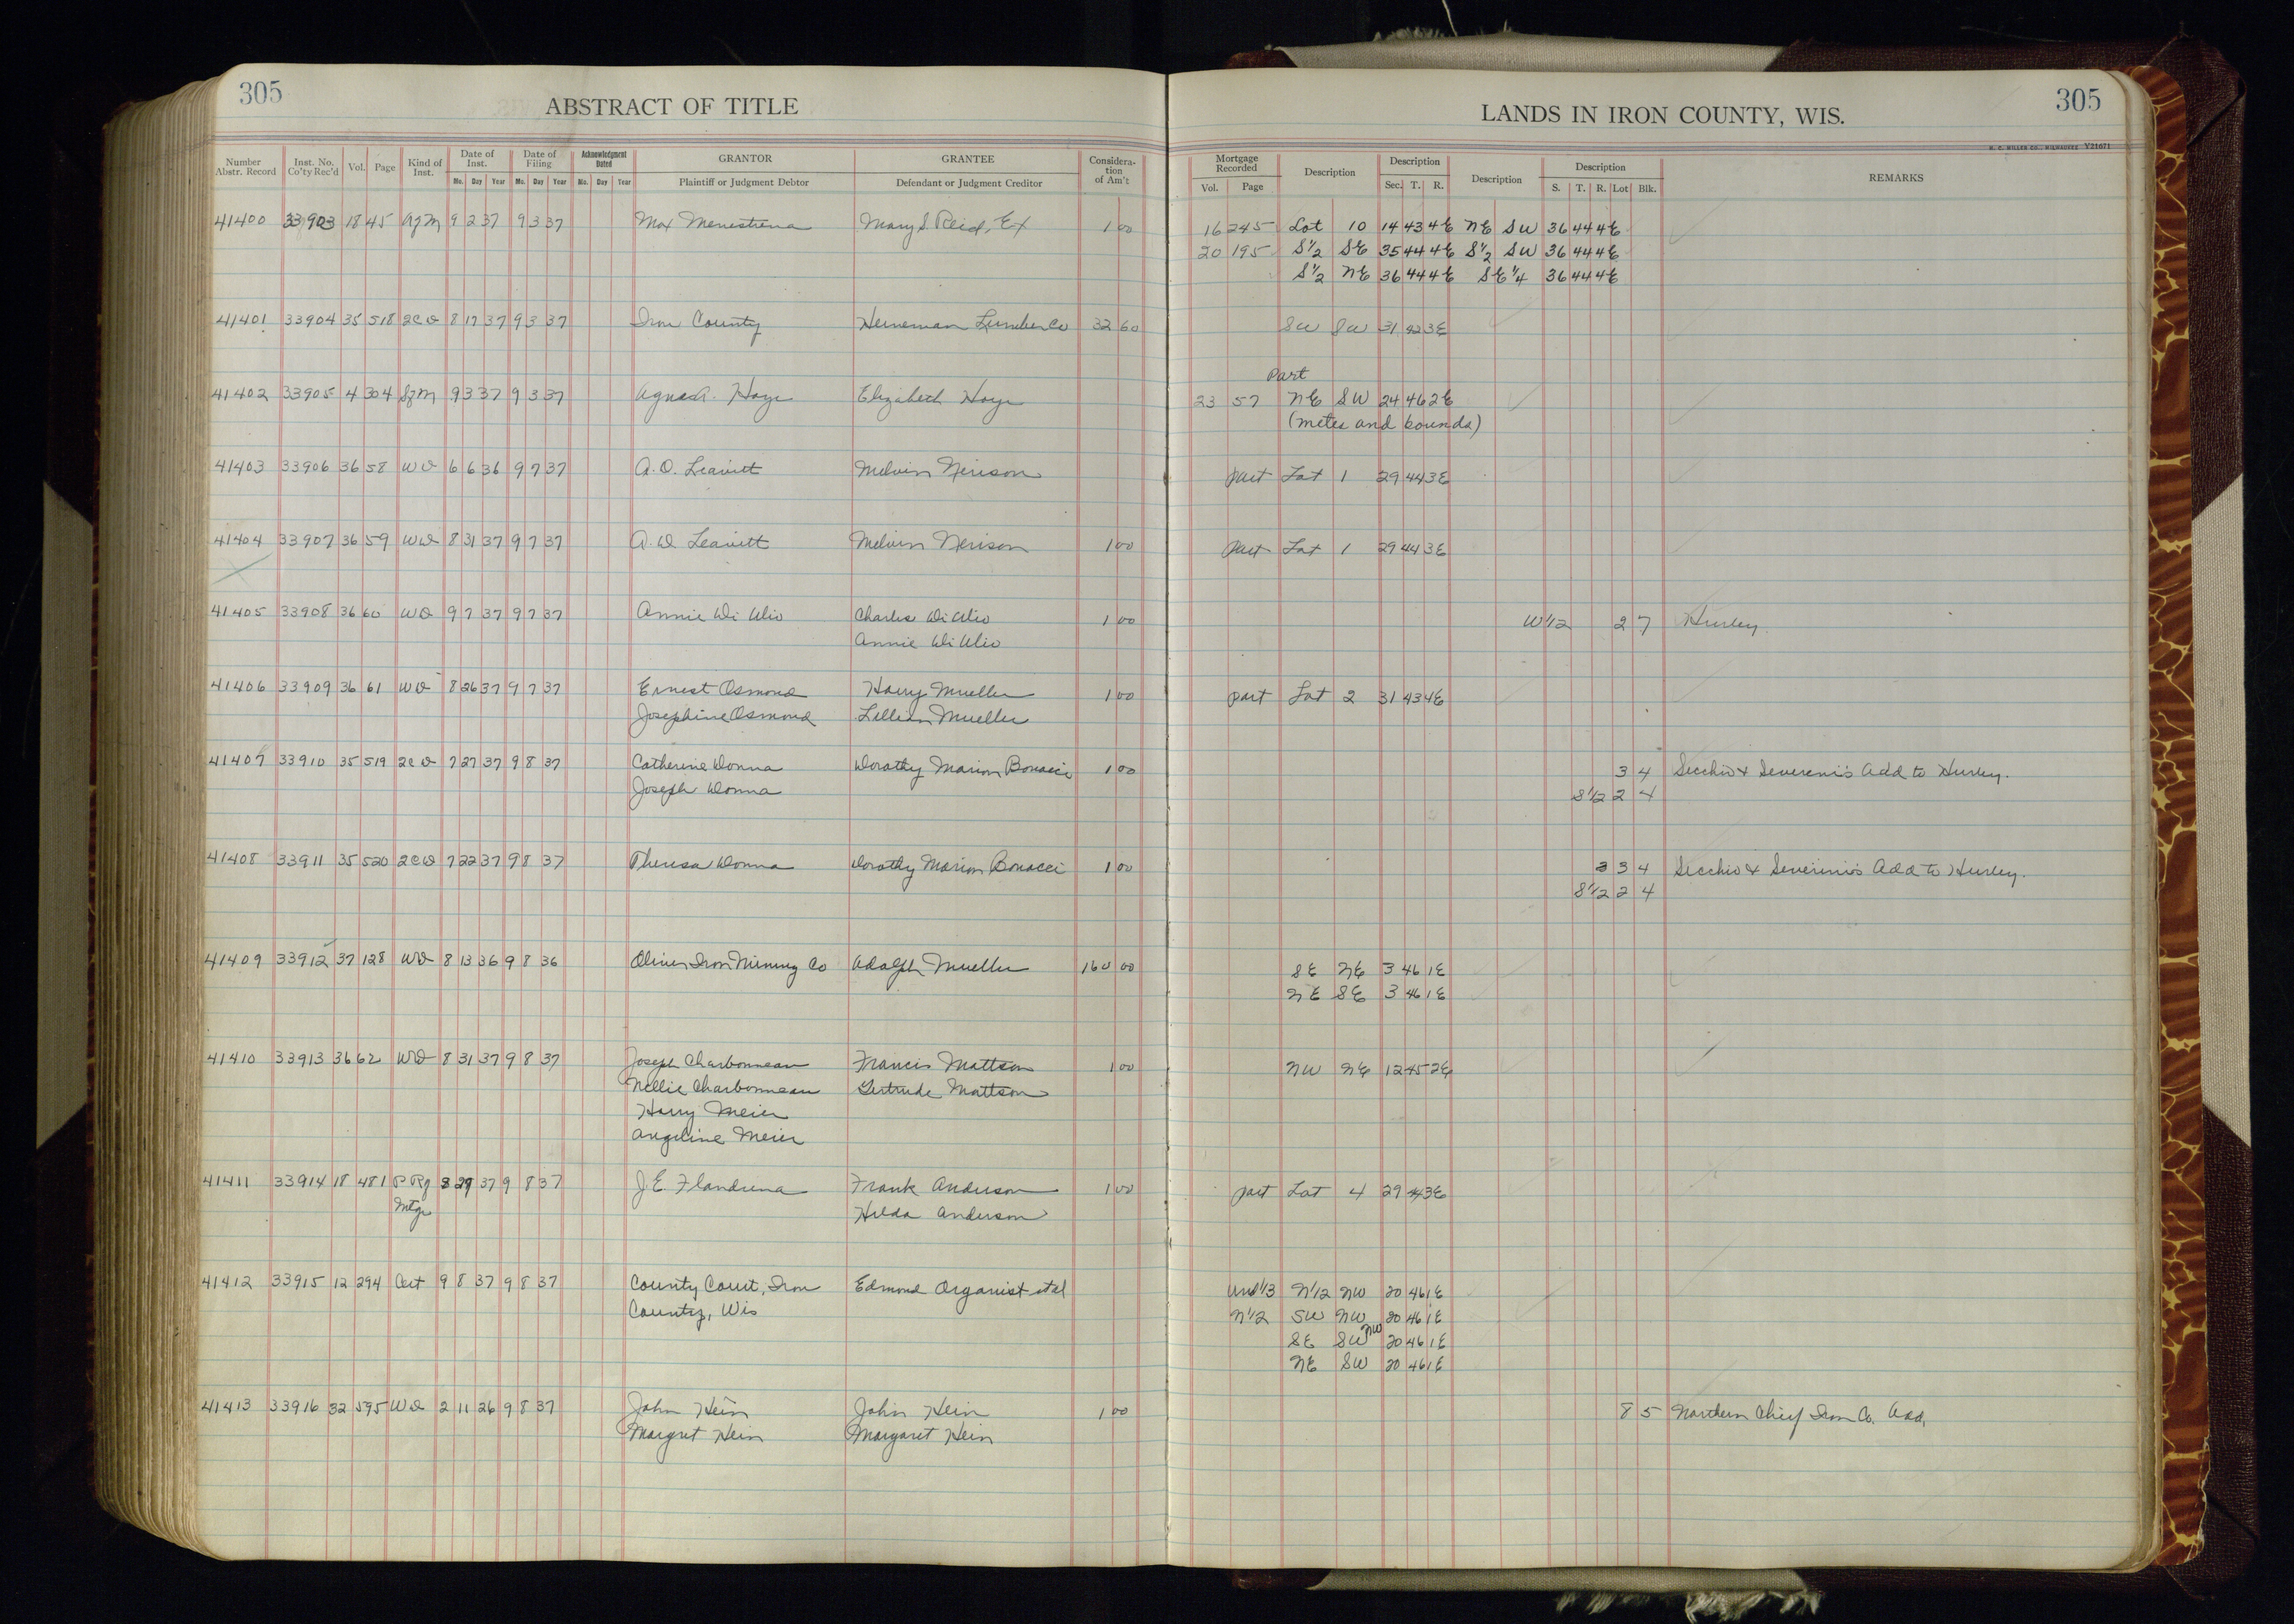 305
ABSTRACT OF TITLE
Number Abstr. Record
Inst. No. Co'ty Rec'd
Vol.
Page
Kind of Inst.
Date of Inst.
Mo. Day Year
Date of Filing
Mo. Day Year
Acknowledgment Dated
Mo. Day Year
GRANTOR
Plaintiff or Judgment Debtor
GRANTEE
Defendant or Judgment Creditor
Considera-tion of Am't
305
LANDS IN IRON COUNTY, WIS.
H. C. MILLER CO., MILWAUKEE Y21671
Mortgage Recorded
Vol. Page
Description
Description
Sec. T. R.
Description
Description
S. T. R. Lot Blk.
REMARKS
41400 33903 18 45 AfM 9 2 37 9 3 37 Max Menestrena Mary S. Reid, Ex 1 00 16 245 Lot 10 14 43 4E NE SW 36 44 4E
20 195 S1/2 SE 35 44 4E S1/2 SW 36 44 4E
S1/2 NE 36 44 4E SE1/4 36 44 4E
41401 33904 35 518 2CD 8 17 37 9 3 37 Iron County Heineman Lumber Co 32 60 SW SW 31 42 3E
Part
41402 33905 4 304 SfM 9 3 37 9 3 37 Agnes A. Hoye Elizabeth Hoye 23 57 NE SW 24 46 2E
(metes and bounds)
41403 33906 36 58 WD 6 6 36 9 7 37 A. D. Leavitt Melvin Nerison part Lot 1 29 44 3E
41404 33907 36 59 WD 8 31 37 9 7 37 A. D. Leavitt Melvin Nerison 1 00 part Lot 1 29 44 3E
41405 33908 36 60 WD 9 7 37 9 7 37 Annie Di Ulio Charles Di Ulio 1 00 W1/2 2 7 Hurley.
Annie Di Ulio
41406 33909 36 61 WD 8 26 37 9 7 37 Ernest Osmond Harry Mueller 1 00 part Lot 2 31 43 4E
Josephine Osmond Lillian Mueller
41407 33910 35 519 2CD 7 27 37 9 8 37 Catherine Donna Dorothy Marion Bonacci 1 00 3 4 Secchio & Severini's Add to Hurley.
Joseph Donna S1/2 2 4
41408 33911 35 520 2CD 7 22 37 9 8 37 Theresa Donna Dorothy Marion Bonacci 1 00 3 3 4 Secchio & Severini's Add to Hurley.
S1/2 2 4
41409 33912 37 128 WD 8 13 36 9 8 36 Oliver Iron Mining Co Adolph Mueller 160 00 SE NE 3 46 1E
NE SE 3 46 1E
41410 33913 36 62 WD 8 31 37 9 8 37 Joseph Charbonneau Francis Mattson 1 00 NW NE 12 45 2E
Nellie Charbonneau Gertrude Mattson
Harry Meier
Angeline Meier
41411 33914 18 481 P Rf 3 29 37 9 8 37 J. E. Flandrena Frank Anderson 1 00 part Lot 4 29 44 3E
Mtge Hilda Anderson
41412 33915 12 294 Cert 9 8 37 9 8 37 County Court, Iron Edmond Organist et al Und 1/3 N1/2 NW 20 46 1E
County, Wis N1/2 SW NW 20 46 1E
SE SW NW 20 46 1E
NE SW 20 46 1E
41413 33916 32 595 WD 2 11 26 9 8 37 John Hein John Hein 1 00 8 5 Northern Chief Iron Co. Add,
Margret Hein Margaret Hein